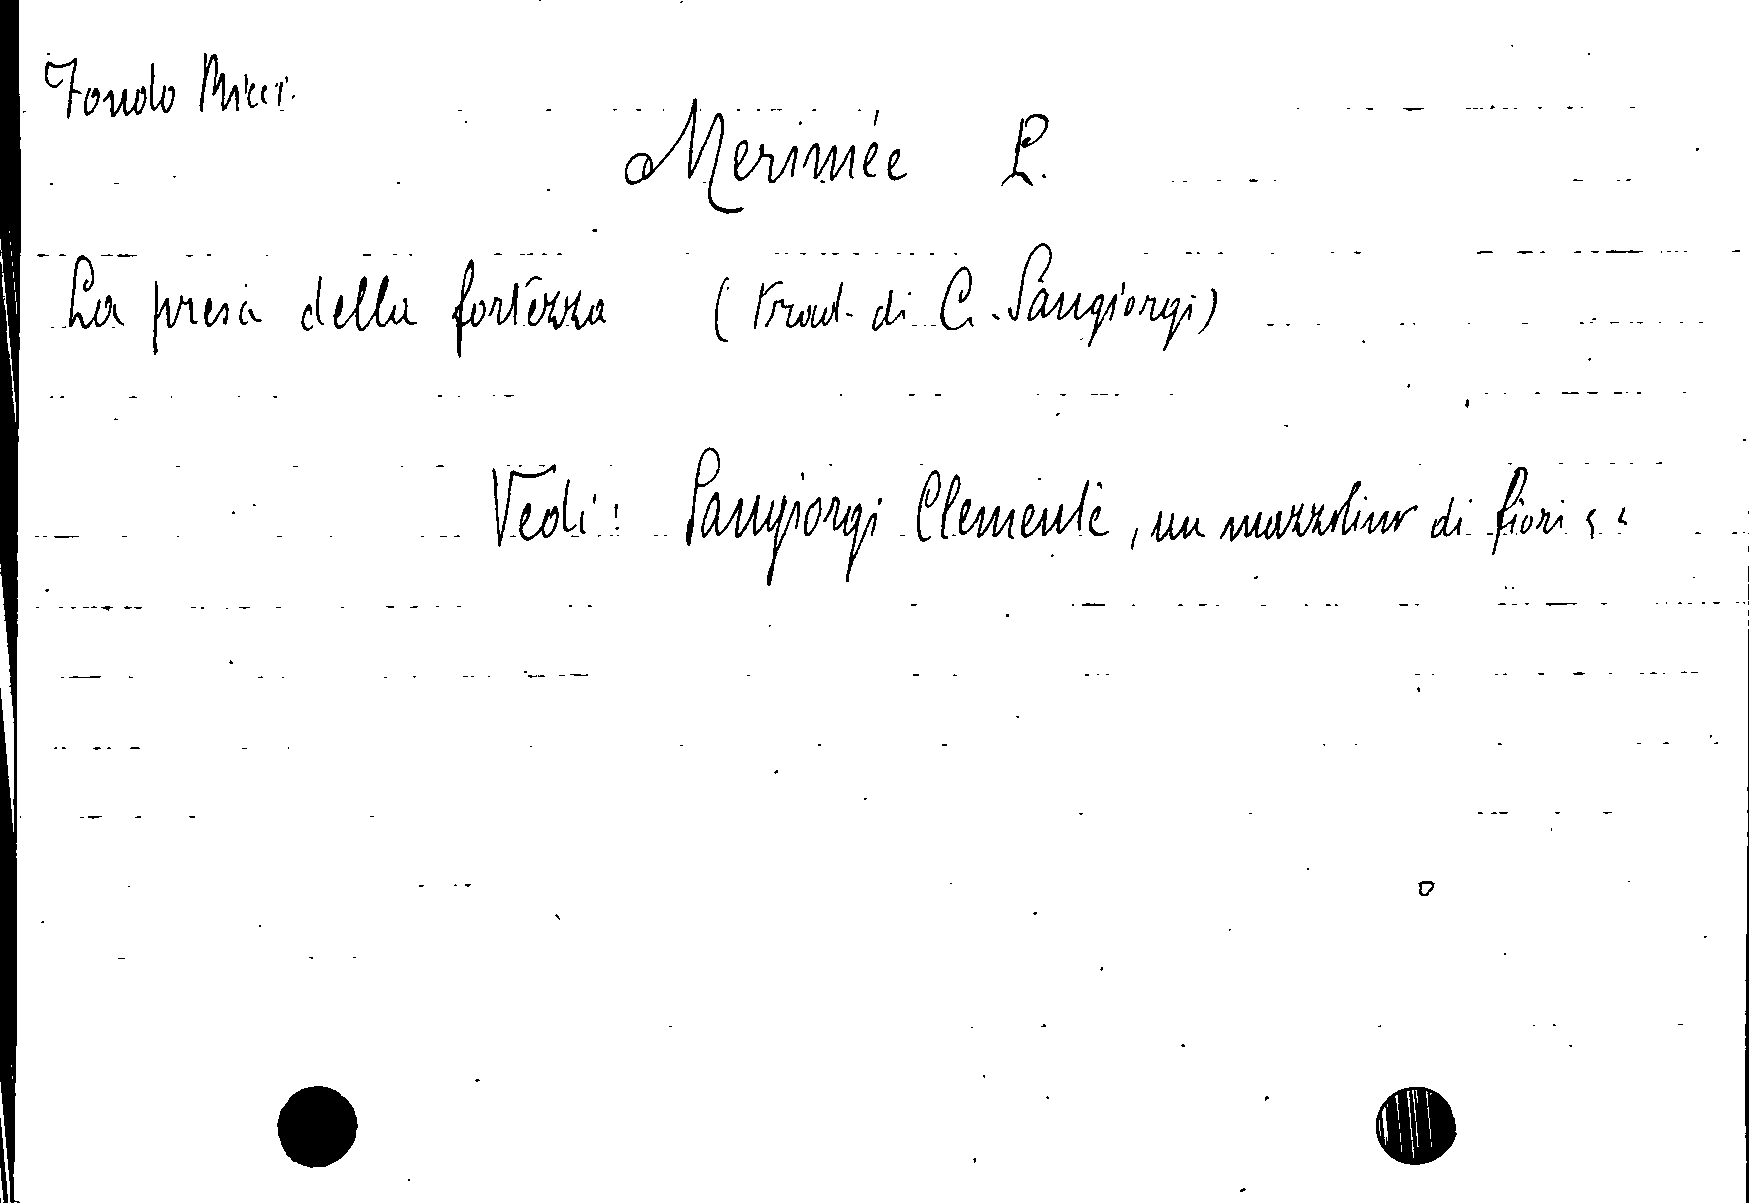 Fondo Ricci.
Merimée P.
La presa della fortezza (trad. di C. Sangiorgi)
Vedi: Sangiorgi Clemente, un mazzolino di fiori ..